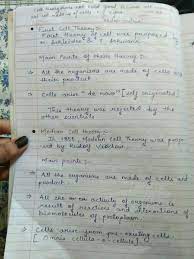 First Cell Theory :-
First theory of cell was proposed
by Schleiden & Schwann
Main Points of these theory :-
All the organisms are made of cells and
their product
Cells arise "de novo" [self originated]
This theory was rejected by the
other scientists
Modern Cell theory :-
Modern Cell theory was proposed
by Rudolf Virchow
Main points :-
All the organisms are made of cells and
product
All the activity of organisms is
result of reactions and interactions of
biomolecules of protoplasm
Cells arise from pre-existing cells
[Omnis cellula-e-cellula]